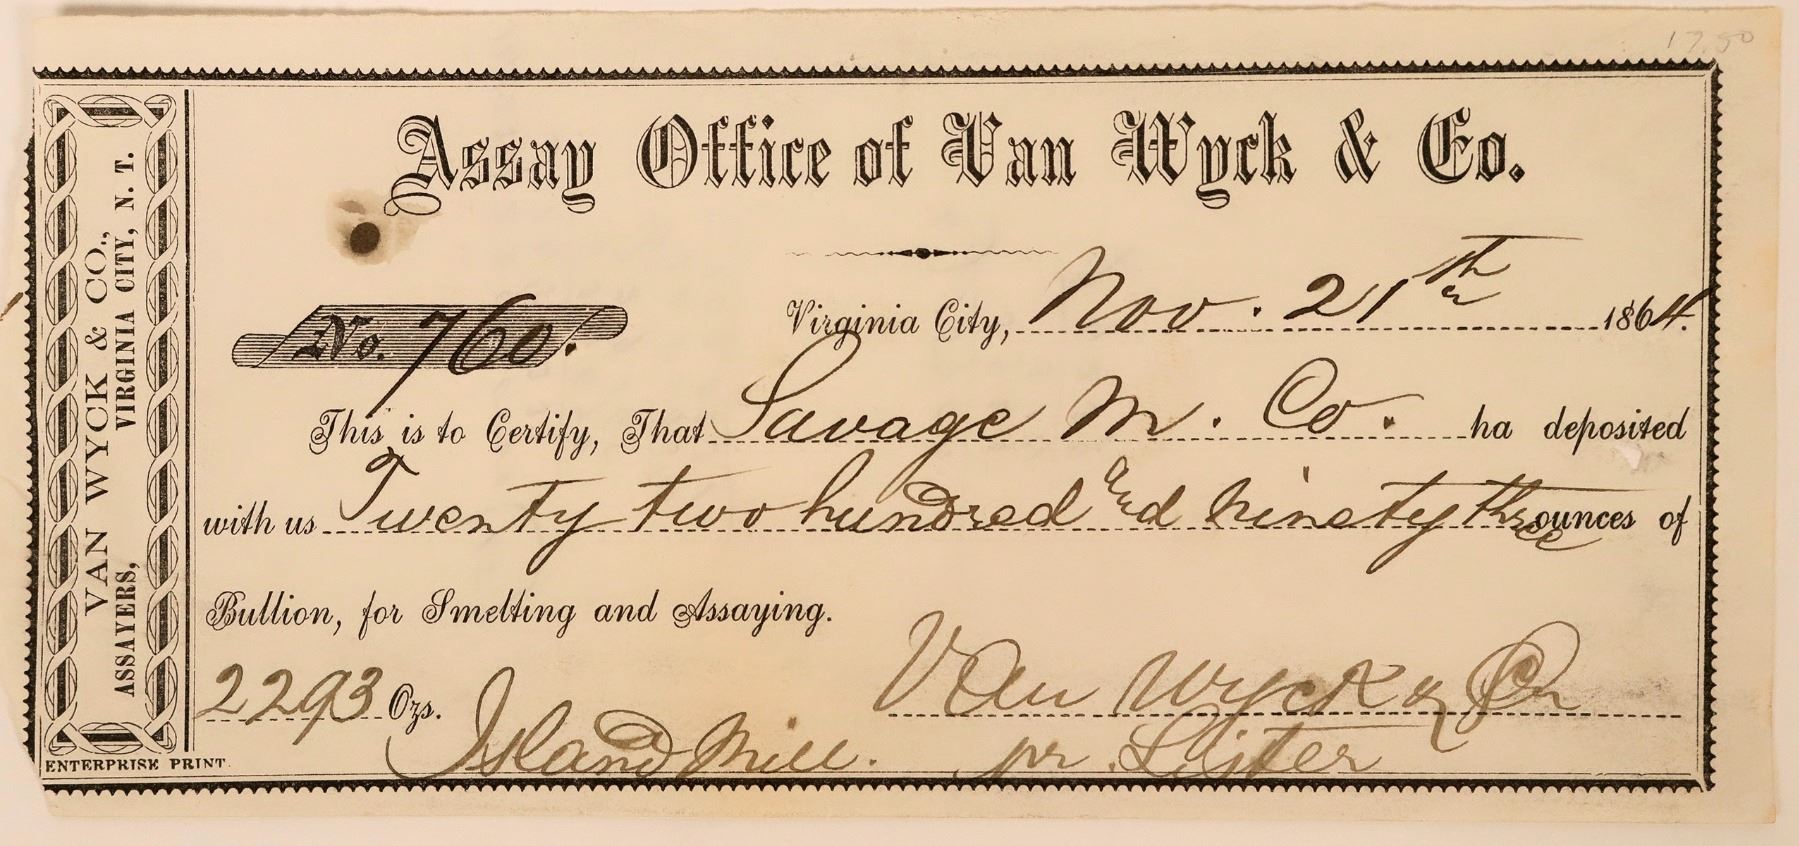 17.50
Assay Office of Van Wyck & Co.
Virginia City, Nov. 21th 1864.
No. 760.
This is to Certify, That Savage M. Co. ha deposited
with us Twenty two hundred and Ninety three ounces of
Bullion, for Smelting and Assaying.
2293 Ozs.
Van Wyck & Co
Island Mill. pr. Lister
VAN WYCK & CO.,
ASSAYERS, VIRGINIA CITY, N. T.
ENTERPRISE PRINT